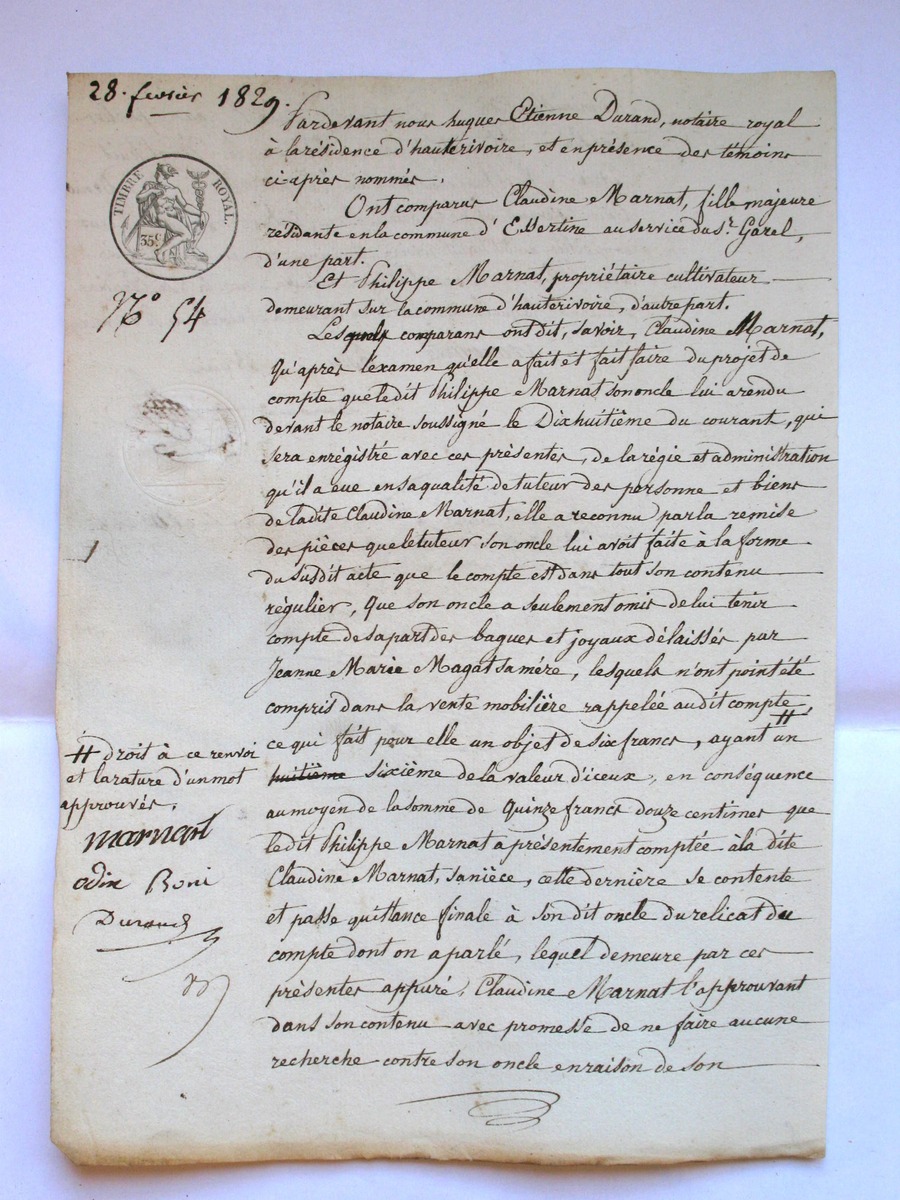 28. fevrier 1829.
TIMBRE ROYAL.
35 c
N.o 54
Pardevant nous hugues Etienne Durand, notaire royal
à la résidence d'hauterivoire, et en présence des témoins
ci-après nommés.
Ont comparus Claudine Marnat, fille majeure
résidante en la commune d'Essertine au service du Sr. Garel,
d'une part.
Et Philippe Marnat, propriétaire cultivateur
demeurant sur la commune d'hauterivoire, d'autre part.
Lesquels comparans ont dit, savoir, Claudine Marnat,
Qu'après l'éxamen qu'elle a fait et fait faire du projet de
compte que le dit Philippe Marnat son oncle lui a rendu
devant le notaire soussigné le Dixhuitième du courant, qui
sera enrégistré avec ces présentes, de la régie et administration
qu'il a eue en sa qualité de tuteur des personne et biens
de la dite Claudine Marnat, elle a reconnu par la remise
des pièces que le tuteur son oncle lui avoit faite à la forme
du susdit acte que le compte est dans tout son contenu
régulier, Que son oncle a seulement omis de lui tenir
compte de sa part des bagues et joyaux délaissés par
Jeanne Marie Magat sa mére, lesquels n'ont point été
compris dans la vente mobilière rappelée audit compte,
ce qui fait pour elle un objet de six francs, ayant # un
huitième sixième de la valeur d'iceux, en conséquence
au moyen de la somme de Quinze francs douze centimes que
le dit Philippe Marnat a présentement comptée à la dite
Claudine Marnat, sa nièce, cette dernière se contente
et passe quittance finale à son dit oncle du relicat du
compte dont on a parlé, lequel demeure par ces
présentes appuré, Claudine Marnat l'approuvant
dans son contenu avec promesse de ne faire aucune
recherche contre son oncle en raison de son
# droit à ce renvoi
et la rature d'un mot
approuvés.
marnat
odin Boni
Durand